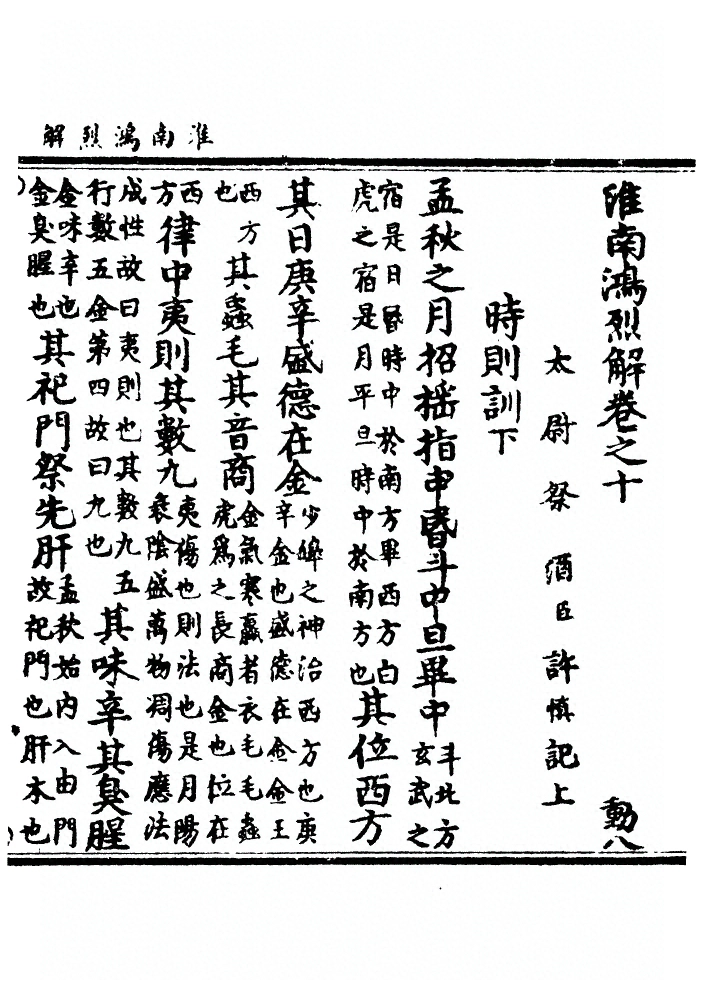 淮南鴻烈解
淮南鴻烈解卷之十 動八
太尉祭酒臣許慎記上
時則訓下
孟秋之月招搖指申昏斗中旦畢中斗北方玄武之
宿是日昏時中於南方畢西方白虎之宿是月平旦時中於南方也其位西方
其日庚辛盛德在金少皞之神治西方也庚辛金也盛德在金金王
西方也其蟲毛其音商金氣寒羸者衣毛毛蟲虎為之長商金也位在
西方律中夷則其數九夷傷也則法也是月陽衰陰盛萬物凋傷應法
成性故曰夷則也其數九五行數五金第四故曰九也其味辛其臭腥
金味辛也金臭腥也其祀門祭先肝孟秋始內入由門故祀門也肝木也